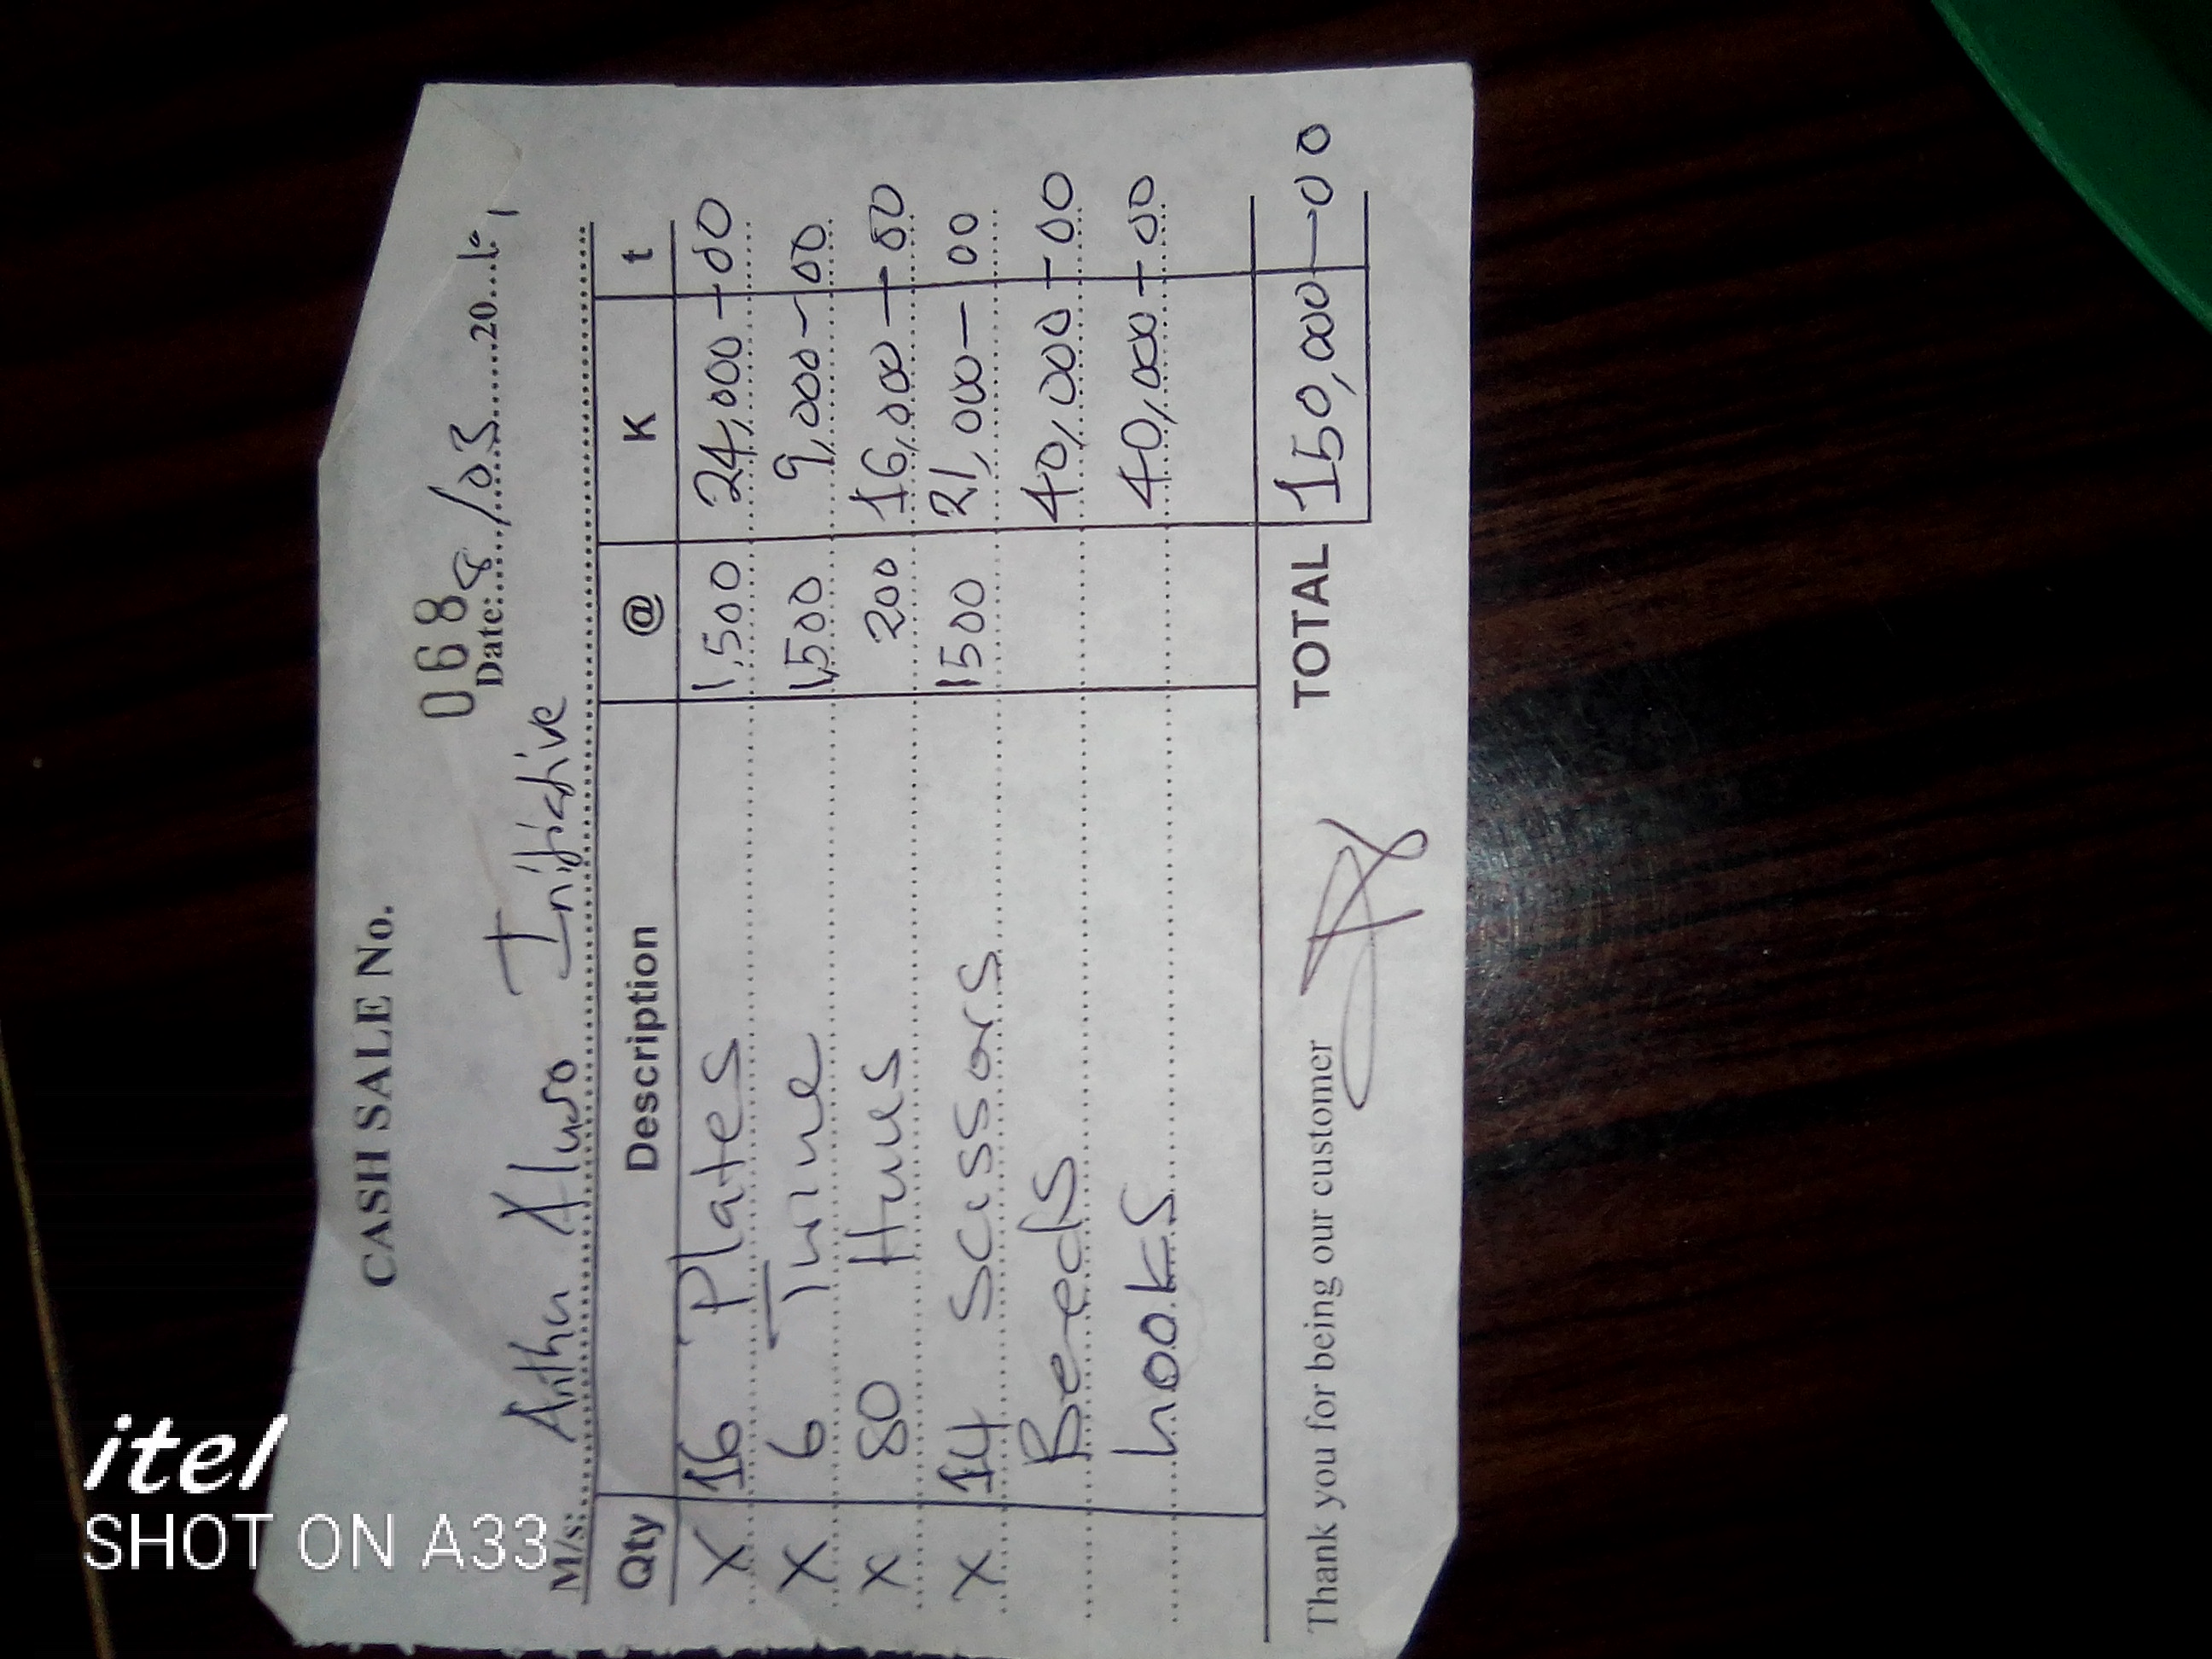 CASH SALE No.
068
Date: 8/03 20
M/s: Initiative
Qty Description @ K t
X 16 Plates 1,500 24,000-00
X 6 Twine 1,500 9,000-00
X 80 200 16,000-00
X 14 Scissors 1500 21,000-00
Beeds 40,000-00
hooks 40,000-00
TOTAL 150,000-00
Thank you for being our customer
itel
SHOT ON A33